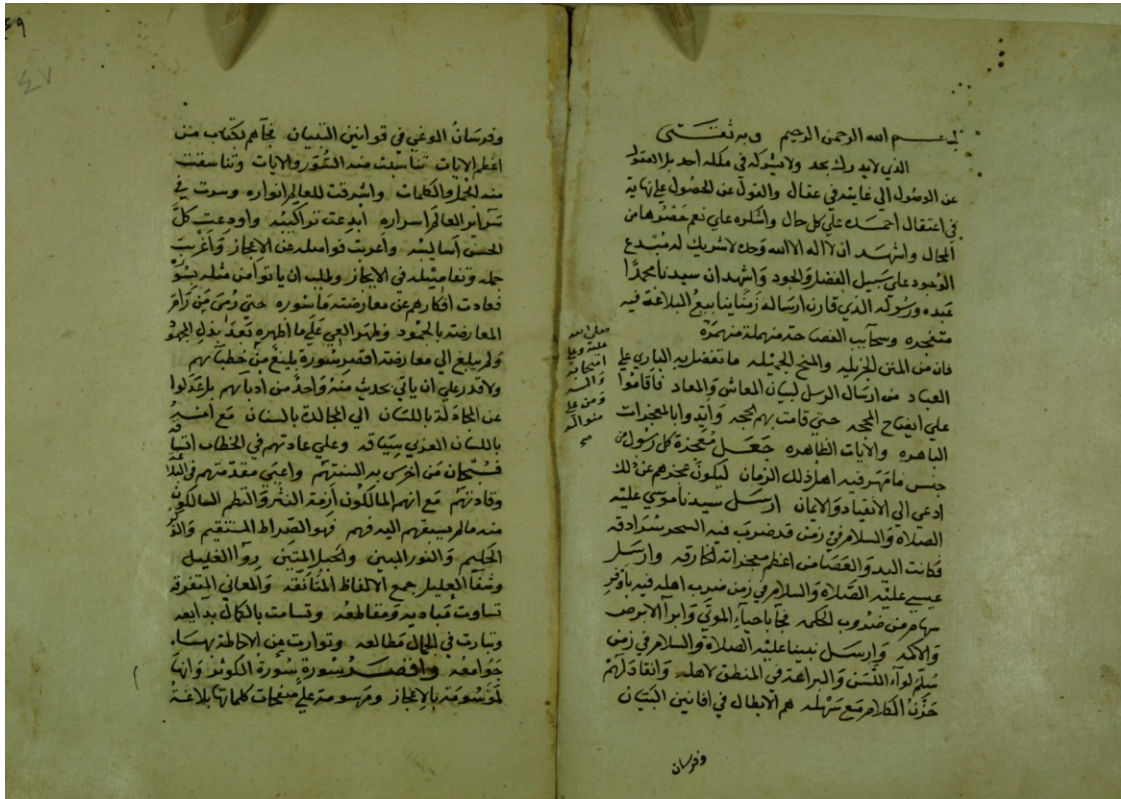 بسم الله الرحمن الرحيم وبه ثقتي
الذي لا يدرك بحد ولا يشركه في ملكه أحد بل العقول
عن الوصول الى غايته في عقال والقول عن الحصول على نهاية
في اعتقال احمده علي كل حال واشكره علي نعم
المحال واشهد ان لا اله الا الله وحده لا شريك له مبدع
الوجود علي سبيل الفضل والجود واشهد ان سيدنا محمدًا
عبده ورسوله الذي قارن ارساله زمنًا ينابيع البلاغة فيه
متفجره وسحايب الفصاحة منهملة منهمرة
صلى الله
عليه وعلى
اصحابه
وآله
ومن على
منواله
فان من المنن الجزيله والمنح الجميله ما تفضل به الباري علي
العباد من ارسال الرسل لبيان المعاش والمعاد فاقاموا
علي ايضاح المحجه حتي قامت بهم الحجه وأيدوا بالمعجزات
الباهره والآيات الظاهره جعل معجزة كل رسول من
جنس ما مهر فيه اهل ذلك الزمان ليكون عجزهم عن ذلك
ادعى الي الانقياد والايمان ارسل سيدنا موسي عليه
الصلاة والسلام في زمن قد ضرب فيه السحر سرادقه
فكانت اليد والعصا من اعظم معجزاته الخارقه وارسل
عيسي عليه الصلاة والسلام في زمن ضرب اهله فيه باوفر
سهام من ضروب الحكمه فجا باحياء الموتي وابرآ الابرص
والاكمه وارسل نبينا عليه الصلاة والسلام في زمن
سلم لوآء اللسن والبراعة في المنطق لاهله وانقاد لهم
حزن الكلام مع سهله هم الابطال في افانين البيان
وفرسان
٤٩
٤٧
وفرسان الوغي في قوانين التبيان فجآهم بكتاب من
اعظم الايات تناسبت منه السور والايات وتناسقت
منه الجمل والكلمات واشرقت للعالم انواره وسرت في
سراير العالم اسراره ابدعت تراكيبه واودعت كل
الحسن أساليبه واعربت فواصله عن الاعجاز واغربت
جمله وتفاصيله في الايجاز وطلب ان ياتوا من مثله بسور
فعادت افكارهم عن معارضته مأسوره حتى رمى من رام
المعارضة بالجمود وظهر العي علي ما اظهره بعد بذل المجهود
ولم يبلغ الي معارضة اقصر سورة بليغ من خطبآيهم
ولا قدر علي ان ياتي بحديث منه واحد من ادبآيهم بل عدلوا
عن المجادلة باللسان الي المجالدة بالسنان مع انه
باللسان العربي سياقه وعلي عادتهم في الخطاب
فسبحان من اخرس به السنتهم واعيي مقدمتهم في البلاغة
وقادتهم مع انهم المالكون ازمة النثر والنظم السالكون
منه ما لم يسبقهم اليه فهم فهو الصراط المستقيم والذكر
الحكيم والنور المبين والحبل المتين روآ الغليل
وشفآ العليل جمع الالفاظ المتأنقه والمعاني المتفرقه
تساوت مباديه ومقاطعه وتسامت بالكمال بدايعه
وتبارت في الجمال مطالعه وتوارت عن الاحاطة بها
جوامعه واقصر سورة سورة الكوثر وانها
لموسومة بالاعجاز ومرسومة علي صفحات كلماتها بلاغة